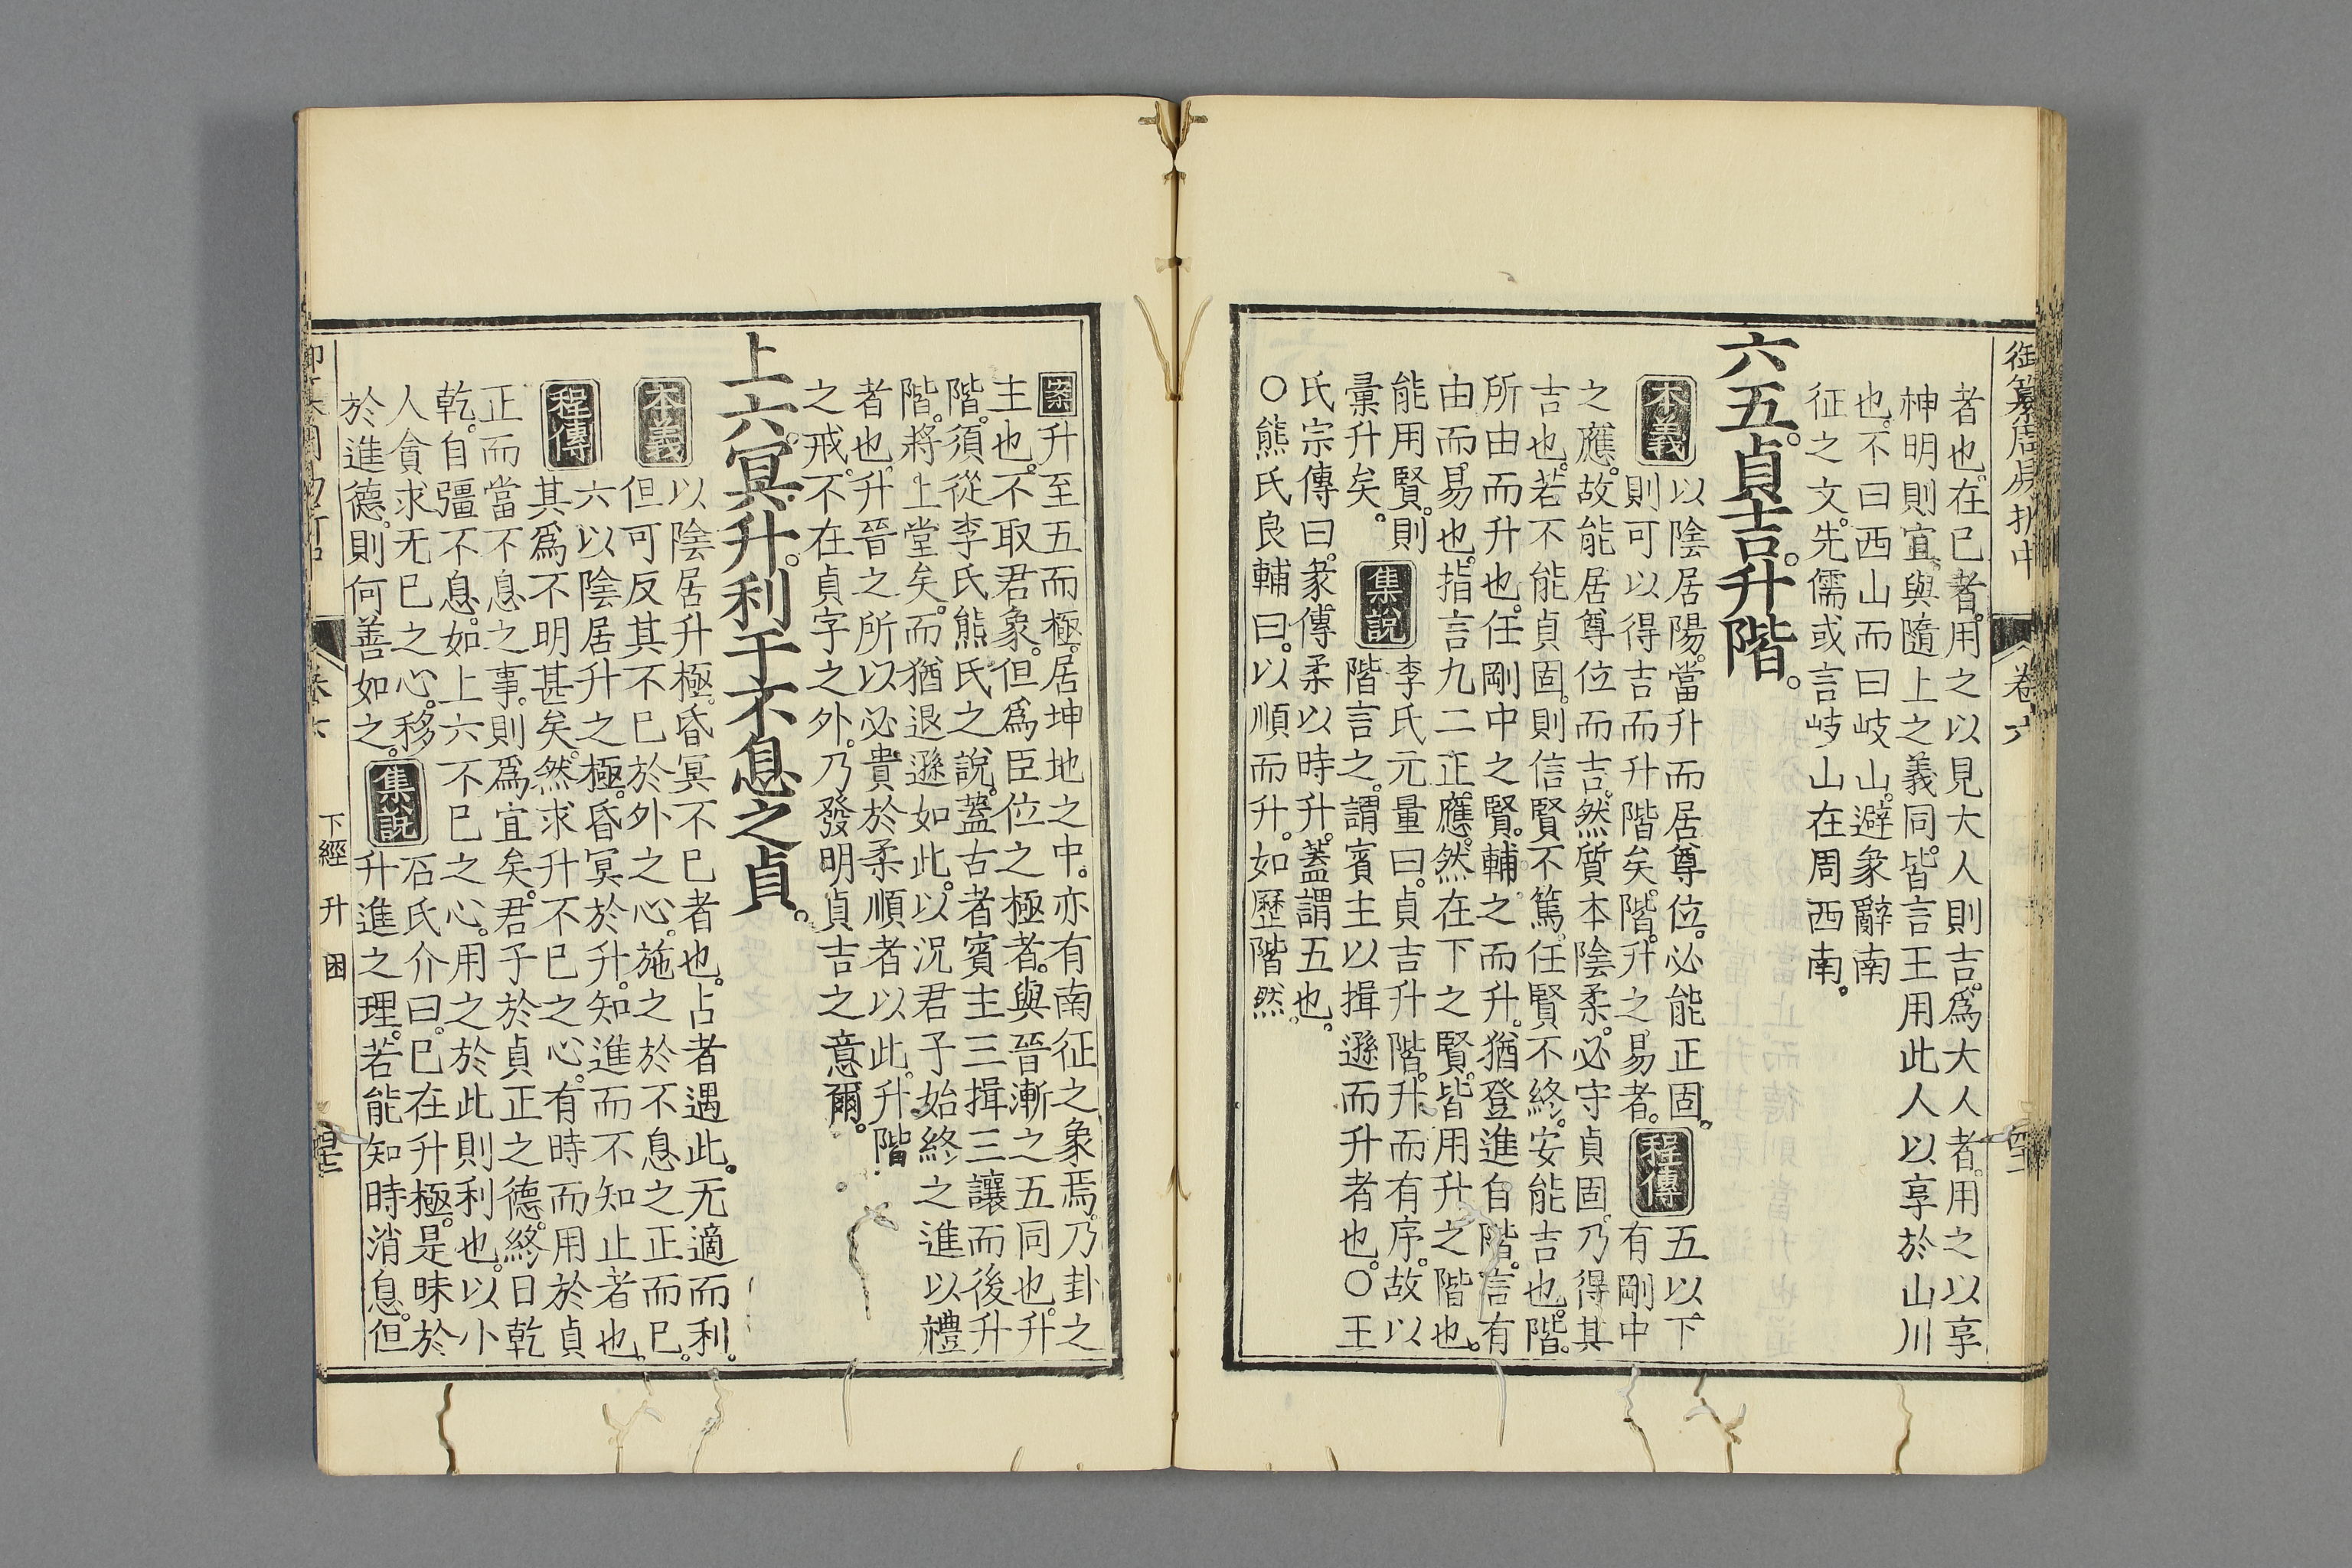 御纂周易折中
卷六
者也。在已者。用之以見大人則吉。爲大人者。用之以享
神明則宜。與隨上之義同。皆言王用此人以享於山川
也。不曰西山而曰岐山。避彖辭南
征之文。先儒或言岐山在周西南。
六五。貞吉。升階。
本義
以陰居陽。當升而居尊位。必能正固。
則可以得吉而升階矣。階。升之易者。
程傳
五以下
有剛中
之應。故能居尊位而吉。然質本陰柔。必守貞固。乃得其
吉也。若不能貞固。則信賢不篤。任賢不終。安能吉也。階。
所由而升也。任剛中之賢。輔之而升。猶登進自階。言有
由而易也。指言九二正應。然在下之賢。皆用升之階也。
能用賢。則
彙升矣。
集說
李氏元量曰。貞吉升階。升而有序。故以
階言之。謂賓主以揖遜而升者也。○王
氏宗傳曰。彖傳柔以時升。蓋謂五也。
○熊氏良輔曰。以順而升。如歷階然。
案升至五而極。居坤地之中。亦有南征之象焉。乃卦之
主也。不取君象。但爲臣位之極者。與晉漸之五同也。升
階。須從李氏熊氏之說。蓋古者賓主三揖三讓而後升
階。將上堂矣。而猶退遜如此。以況君子始終之進以禮
者也。升晉之所以必貴於柔順者以此。升階
之戒。不在貞字之外。乃發明貞吉之意爾。
上六。冥升。利于不息之貞。
本義
以陰居升極。昏冥不已者也。占者遇此。无適而利。
但可反其不已於外之心。施之於不息之正而已。
程傳
六以陰居升之極。昏冥於升。知進而不知止者也。
其爲不明甚矣。然求升不已之心。有時而用於貞
正而當不息之事。則爲宜矣。君子於貞正之德。終日乾
乾。自彊不息。如上六不已之心。用之於此則利也。以小
人貪求无已之心。移
於進德。則何善如之。
集說
石氏介曰。已在升極。是昧於
升進之理。若能知時消息。但
卷六
下經 升 困